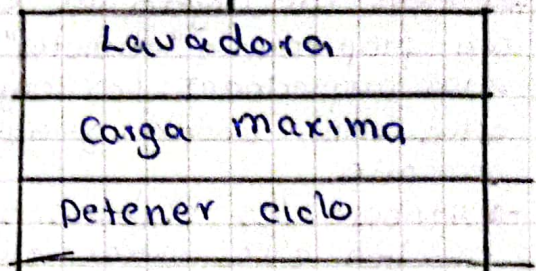 Lavadora
Carga maxima
Detener ciclo